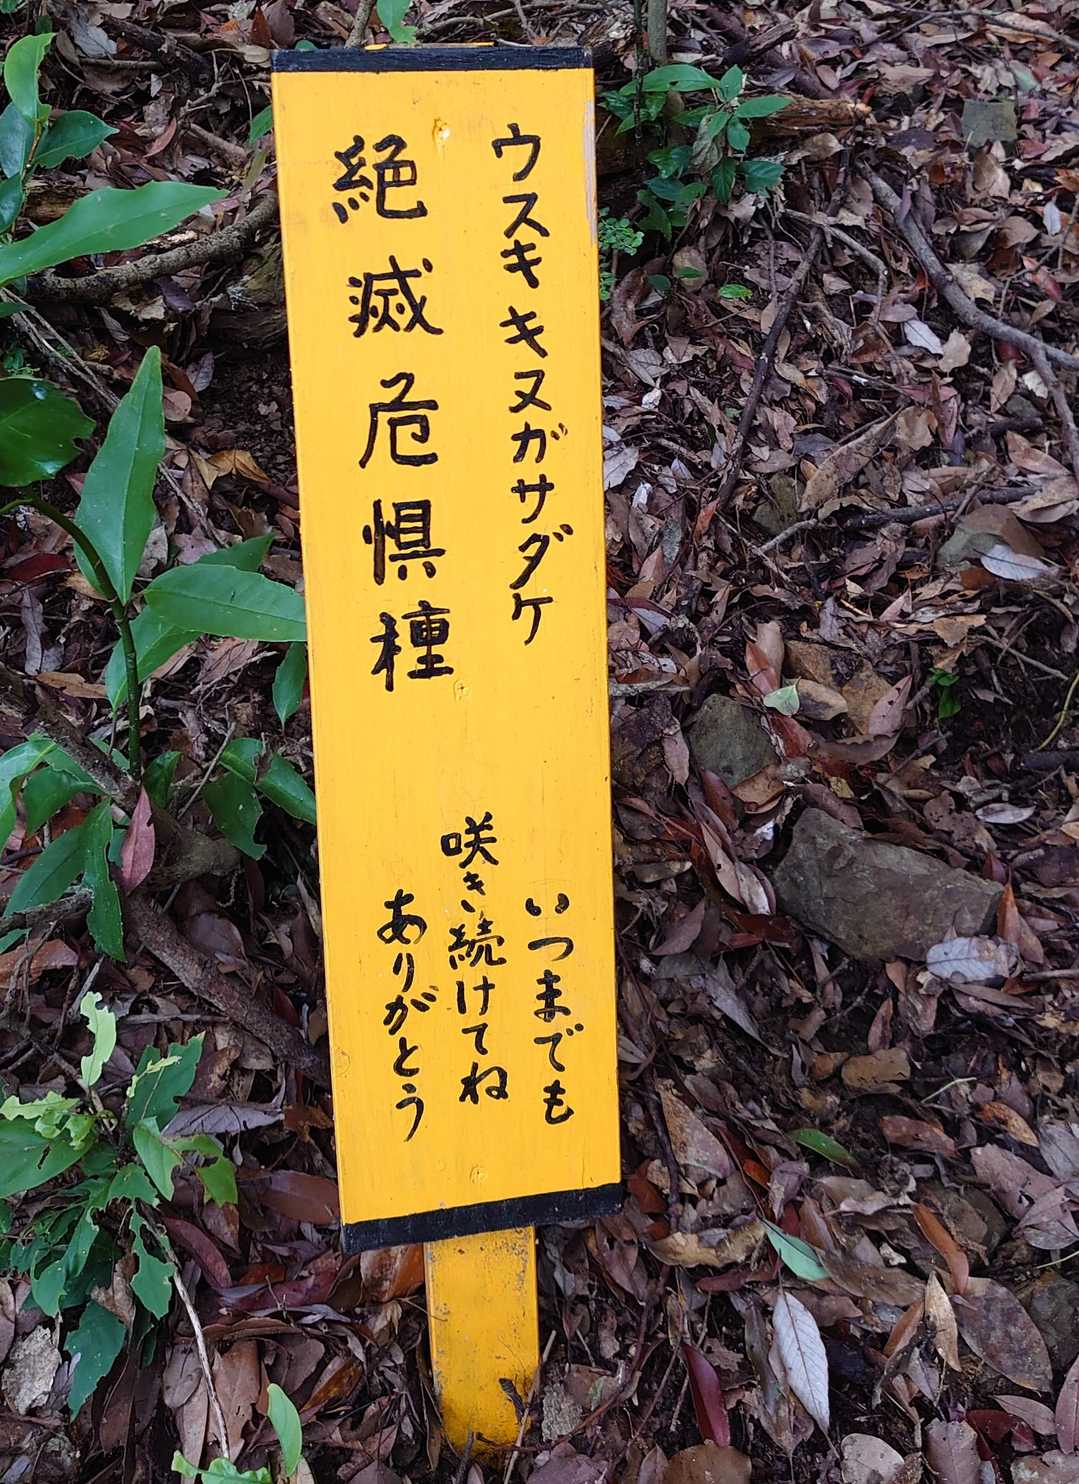 ウスキキヌガサダケ
絶滅危惧種
いつまでも
咲き続けてね
ありがとう